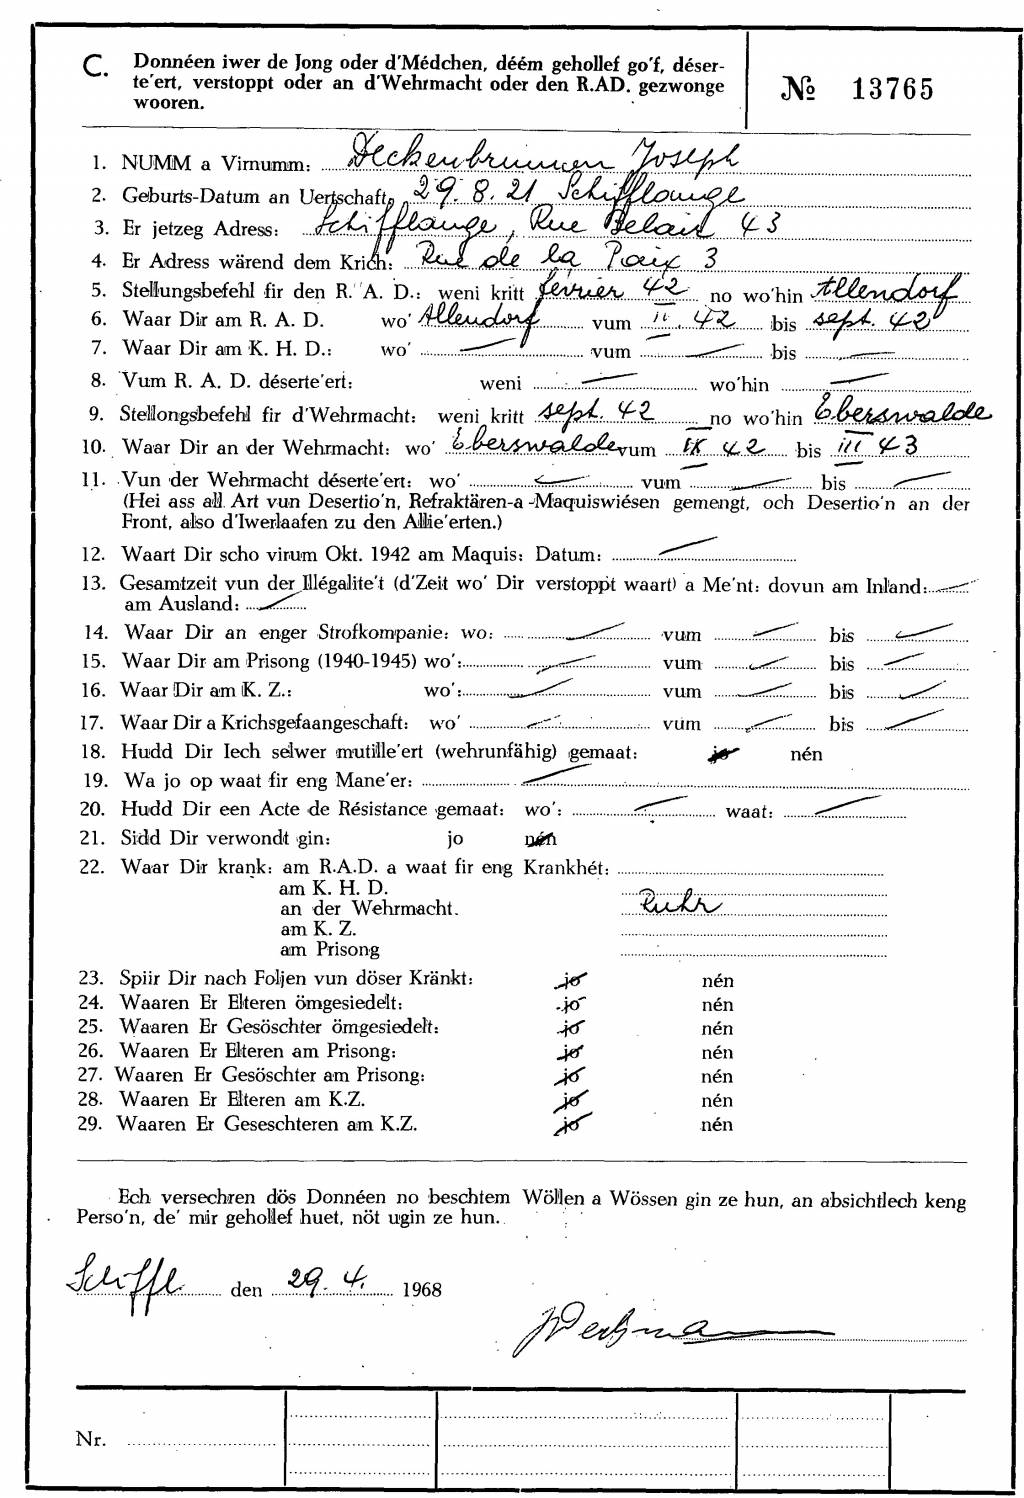 C. Donnéen iwer de Jong oder d'Médchen, déém gehollef go'f, déser-
te'ert, verstoppt oder an d'Wehrmacht oder den R.AD. gezwonge
wooren.
№ 13765
1. NUMM a Virnumm: Deckenbrunnen Joseph
2. Geburts-Datum an Uertschaft, 29. 8. 21 Schifflange
3. Er jetzeg Adress: Schifflange, Rue Belair 43
4. Er Adress wärend dem Krich: Rue de la Paix 3
5. Stellungsbefehl fir den R. A. D.: weni kritt février 42 no wo'hin Allendorf
6. Waar Dir am R. A. D. wo' Allendorf vum II. 42 bis sept. 42
7. Waar Dir am K. H. D.: wo' — vum — bis —
8. Vum R. A. D. déserte'ert: weni — wo'hin —
9. Stellongsbefehl fir d'Wehrmacht: weni kritt sept. 42 no wo'hin Eberswalde
10. Waar Dir an der Wehrmacht: wo' Eberswalde vum IX 42 bis III 43
11. Vun der Wehrmacht déserte'ert: wo' — vum — bis —
(Hei ass all Art vun Desertio'n, Refraktären-a -Maquiswiésen gemengt, och Desertio'n an der
Front, also d'Iwerlaafen zu den Allie'erten.)
12. Waart Dir scho virum Okt. 1942 am Maquis: Datum: —
13. Gesamtzeit vun der Illégalite't (d'Zeit wo' Dir verstoppt waart) a Me'nt: dovun am Inland: —
am Ausland: —
14. Waar Dir an enger Strofkompanie: wo: — vum — bis —
15. Waar Dir am Prisong (1940-1945) wo': — vum — bis —
16. Waar Dir am K. Z.: wo': — vum — bis —
17. Waar Dir a Krichsgefaangeschaft: wo' — vum — bis —
18. Hudd Dir Iech selwer mutille'ert (wehrunfähig) gemaat: jo nén
19. Wa jo op waat fir eng Mane'er: —
20. Hudd Dir een Acte de Résistance gemaat: wo': — waat: —
21. Sidd Dir verwondt gin: jo nén
22. Waar Dir krank: am R.A.D. a waat fir eng Krankhét:
am K. H. D.
an der Wehrmacht. Ruhr
am K. Z.
am Prisong
23. Spiir Dir nach Foljen vun döser Kränkt: jo nén
24. Waaren Er Elteren ömgesiedelt: jo nén
25. Waaren Er Gesöschter ömgesiedelt: jo nén
26. Waaren Er Elteren am Prisong: jo nén
27. Waaren Er Gesöschter am Prisong: jo nén
28. Waaren Er Elteren am K.Z. jo nén
29. Waaren Er Geseschteren am K.Z. jo nén
Ech versechren dös Donnéen no beschtem Wöllen a Wössen gin ze hun, an absichtlech keng
Perso'n, de' mir gehollef huet, nöt ugin ze hun.
Schiffl. den 29. 4. 1968
Nr.